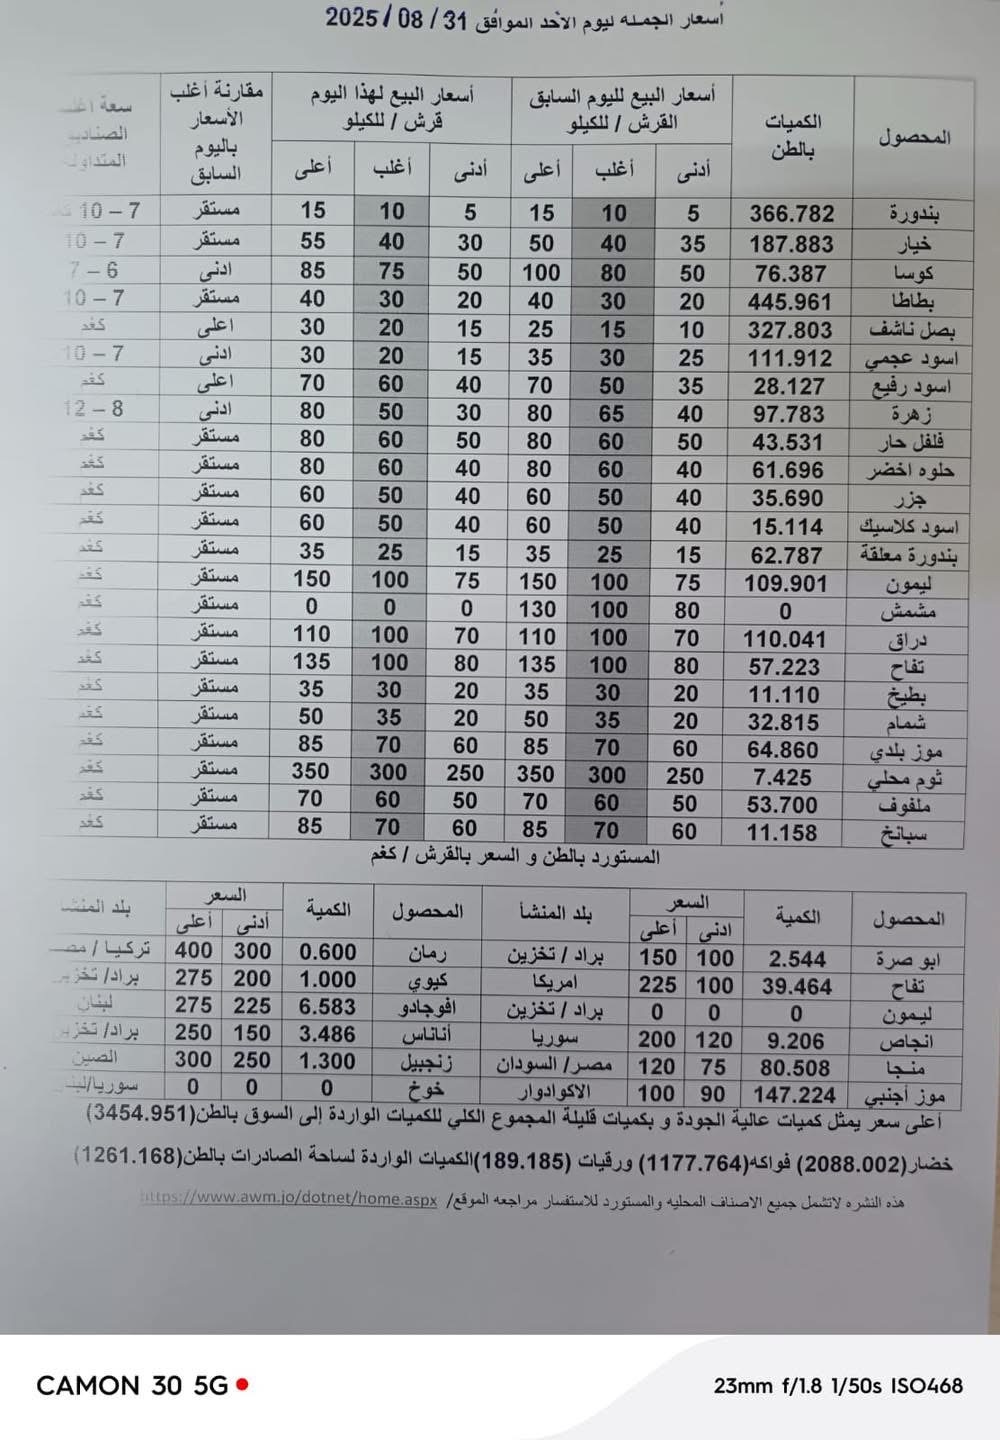 أسعار الجمله ليوم الاحد الموافق 31 / 08 / 2025
المحصول | الكميات بالطن | أسعار البيع لليوم السابق القرش / للكيلو | أسعار البيع لهذا اليوم قرش / للكيلو | مقارنة أغلب الأسعار باليوم السابق | سعة الصناديق
أدنى | أغلب | أعلى | أدنى | أغلب | أعلى
بندورة | 366.782 | 5 | 10 | 15 | 5 | 10 | 15 | مستقر | 7 – 10
خيار | 187.883 | 35 | 40 | 50 | 30 | 40 | 55 | مستقر | 7 – 10
كوسا | 76.387 | 50 | 80 | 100 | 50 | 75 | 85 | ادنى | 6 – 7
بطاطا | 445.961 | 20 | 30 | 40 | 20 | 30 | 40 | مستقر | 7 – 10
بصل ناشف | 327.803 | 10 | 15 | 25 | 15 | 20 | 30 | اعلى | كغم
اسود عجمي | 111.912 | 25 | 30 | 35 | 15 | 20 | 30 | ادنى | 7 – 10
اسود رفيع | 28.127 | 35 | 50 | 70 | 40 | 60 | 70 | اعلى | كغم
زهرة | 97.783 | 40 | 65 | 80 | 30 | 50 | 80 | ادنى | 8 – 12
فلفل حار | 43.531 | 50 | 60 | 80 | 50 | 60 | 80 | مستقر | كغم
حلوه اخضر | 61.696 | 40 | 60 | 80 | 40 | 60 | 80 | مستقر | كغم
جزر | 35.690 | 40 | 50 | 60 | 40 | 50 | 60 | مستقر | كغم
اسود كلاسيك | 15.114 | 40 | 50 | 60 | 40 | 50 | 60 | مستقر | كغم
بندورة معلقة | 62.787 | 15 | 25 | 35 | 15 | 25 | 35 | مستقر | كغم
ليمون | 109.901 | 75 | 100 | 150 | 75 | 100 | 150 | مستقر | كغم
مشمش | 0 | 80 | 100 | 130 | 0 | 0 | 0 | مستقر | كغم
دراق | 110.041 | 70 | 100 | 110 | 70 | 100 | 110 | مستقر | كغم
تفاح | 57.223 | 80 | 100 | 135 | 80 | 100 | 135 | مستقر | كغم
بطيخ | 11.110 | 20 | 30 | 35 | 20 | 30 | 35 | مستقر | كغم
شمام | 32.815 | 20 | 35 | 50 | 20 | 35 | 50 | مستقر | كغم
موز بلدي | 64.860 | 60 | 70 | 85 | 60 | 70 | 85 | مستقر | كغم
ثوم محلي | 7.425 | 250 | 300 | 350 | 250 | 300 | 350 | مستقر | كغم
ملفوف | 53.700 | 50 | 60 | 70 | 50 | 60 | 70 | مستقر | كغم
سبانخ | 11.158 | 60 | 70 | 85 | 60 | 70 | 85 | مستقر | كغم
المستورد بالطن و السعر بالقرش / كغم
المحصول | الكمية | السعر | بلد المنشأ | المحصول | الكمية | السعر | بلد المنشأ
ادنى | أعلى | أدنى | أعلى
ابو صرة | 2.544 | 100 | 150 | براد / تخزين | رمان | 0.600 | 300 | 400 | تركيا /
تفاح | 39.464 | 100 | 225 | امريكا | كيوي | 1.000 | 200 | 275 | براد/
ليمون | 0 | 0 | 0 | براد / تخزين | افوجادو | 6.583 | 225 | 275 | لبنان
انجاص | 9.206 | 120 | 200 | سوريا | أناناس | 3.486 | 150 | 250 | براد/
منجا | 80.508 | 75 | 120 | مصر/ السودان | زنجبيل | 1.300 | 250 | 300 | الصين
موز أجنبي | 147.224 | 90 | 100 | الاكوادوار | خوخ | 0 | 0 | 0 | سوريا/
أعلى سعر يمثل كميات عالية الجودة و بكميات قليلة المجموع الكلي للكميات الواردة إلى السوق بالطن(3454.951)
خضار(2088.002) فواكه(1177.764) ورقيات (189.185)الكميات الواردة لساحة الصادرات بالطن(1261.168)
هذه النشره لاتشمل جميع الاصناف المحليه والمستورد للاستفسار مراجعه الموقع/ https://www.awm.jo/dotnet/home.aspx
CAMON 30 5G
23mm f/1.8 1/50s ISO468